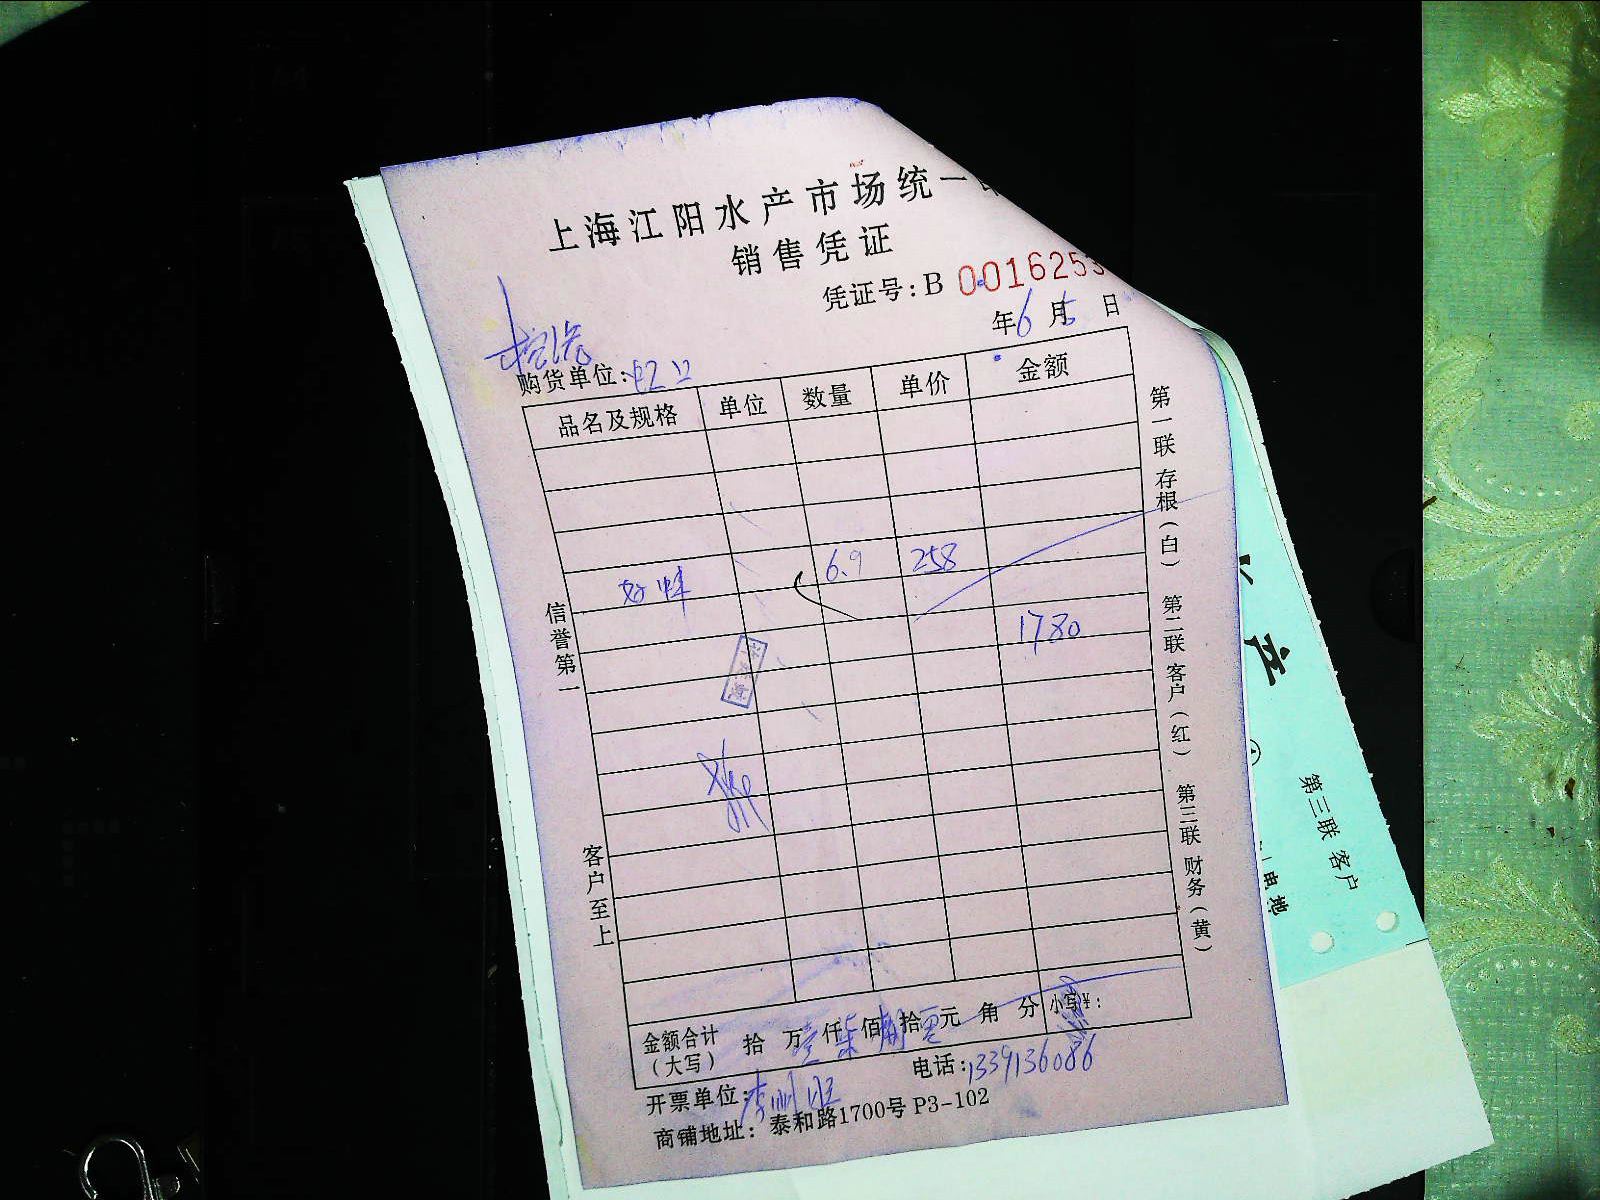 上海江阳水产市场统一
销售凭证
凭证号:B 0016253
年6月5日
购货单位:虹口
品名及规格 单位 数量 单价 金额
6.9 258
1780
信誉第一
客户至上
第一联 存根(白) 第二联 客户(红) 第三联 财务(黄)
金额合计(大写) 拾 万壹仟柒佰捌拾零元 角 分 小写¥:
开票单位:
电话:1339136086
商铺地址: 泰和路1700号 P3-102
产
第三联 客户